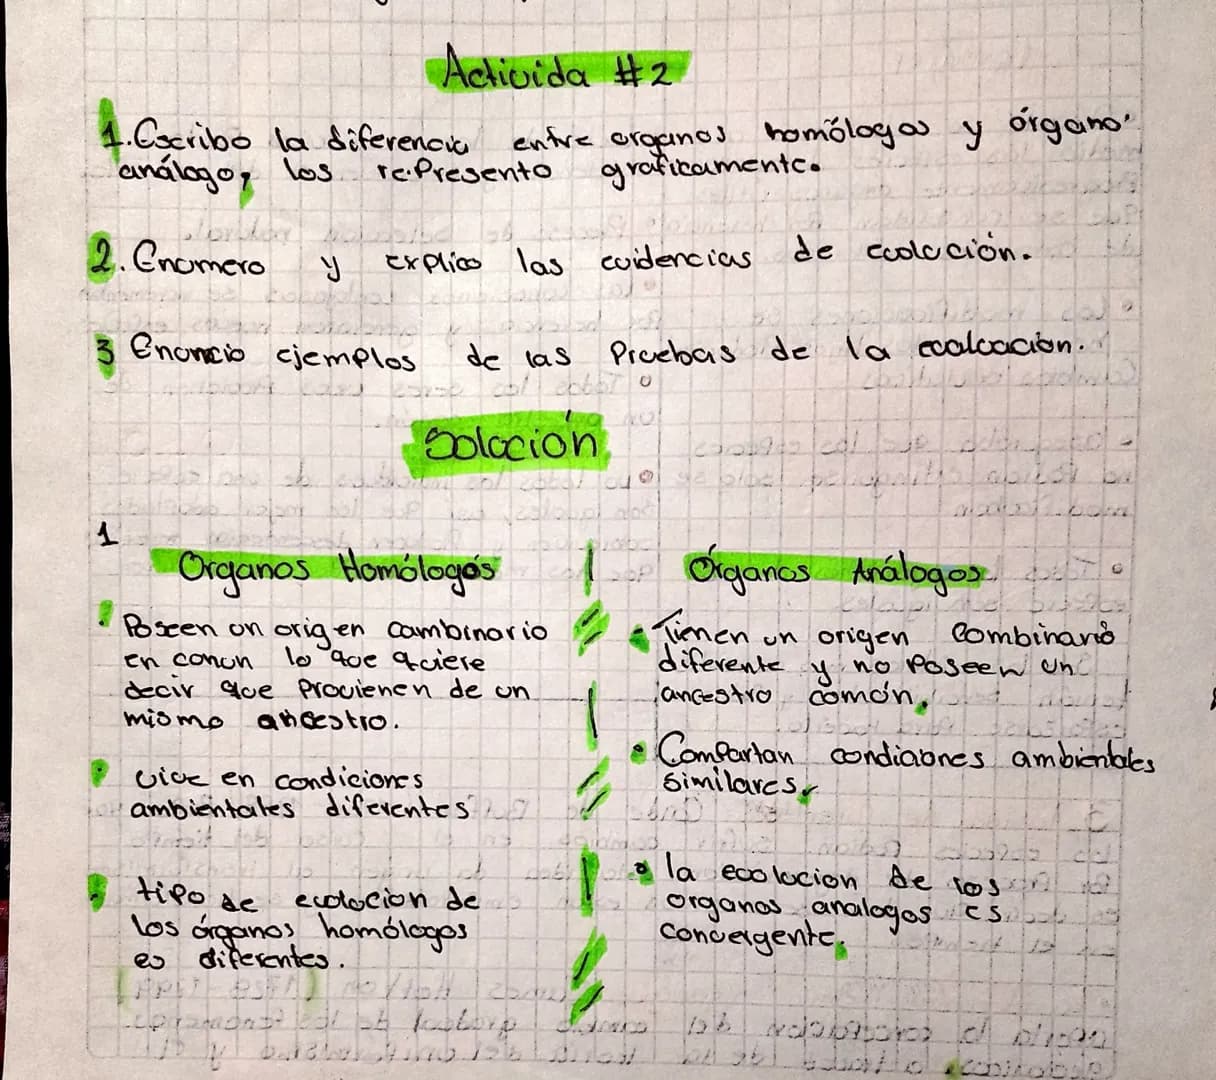 Activida #2
1. Escribo la diferencia entre organos homólogos y órgano
análogo, los represento graficamente.
2. Enumero y explico las evidencias de evolución.
3 Enuncio ejemplos de las Pruebas de la evaluacion.
Solución
1
Organos Homólogos
Poseen un origen combinorio
en comun lo que quiere
decir que Provienen de un
mismo ancestro.
vive en condiciones
ambientales diferentes
tipo de evolucion de
los órganos homólogos
es diferentes.
Órganos Análogos
Tienen un origen Combinario
diferente y no Poseen un
ancestro común.
Compartan condiciones ambientales
similares,
la evolucion de los
organos analogos es
convergente.